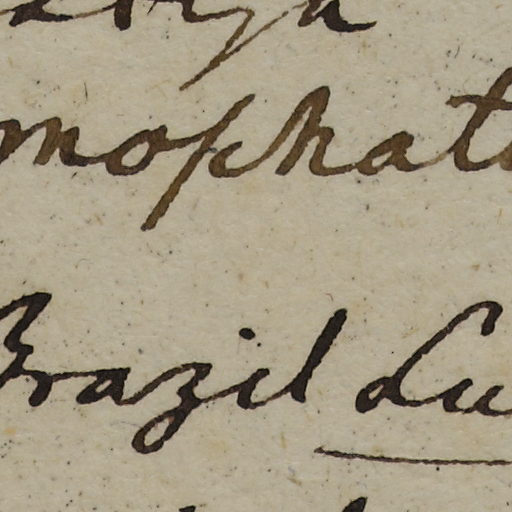 mophat
Brazil Lu